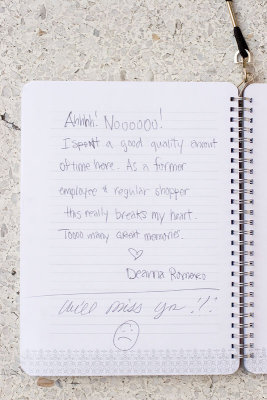 Ahhhh! Noooooo!
I spent a good quality amount
of time here. As a former
employee & regular shopper
this really breaks my heart.
Toooo many great memories.
♡
Deanna Romero
will miss ya!!